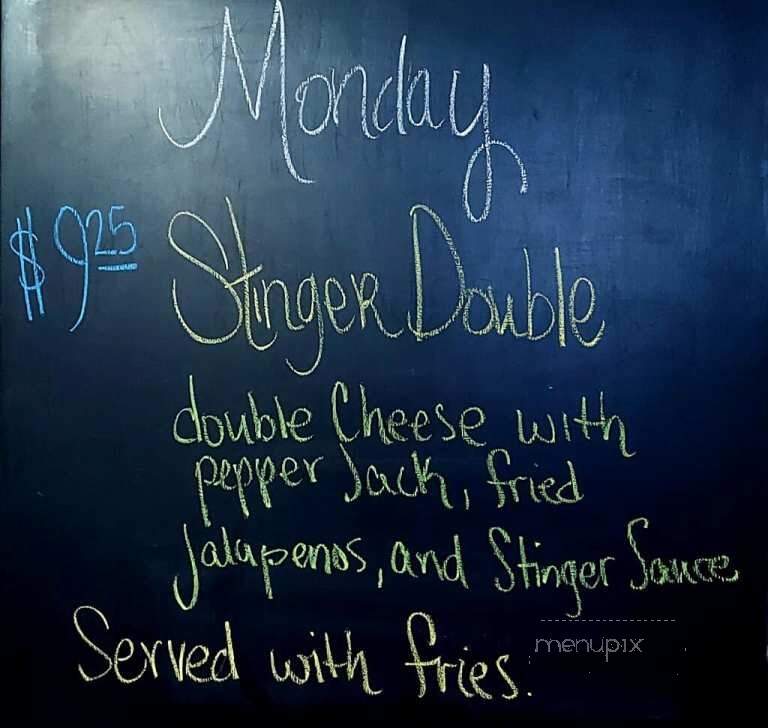 Monday
$9.25 Stinger Double
double Cheese with
pepper Jack, fried
jalapenos, and Stinger Sauce
Served with fries.
menupix